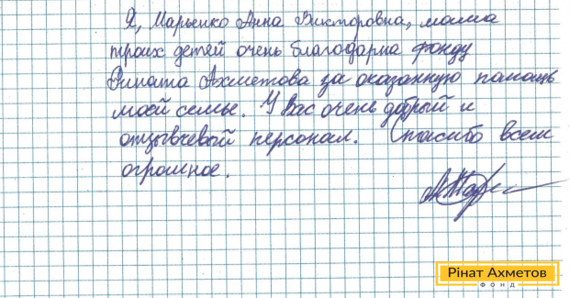 Я, Марьенко Анна Викторовна, мама
троих детей очень благодарна Фонду
Рината Ахметова за оказанную помощь
моей семье. У Вас очень добрый и
отзывчевый персонал. Спасибо всем
огромное.
Рінат Ахметов
ФОНД